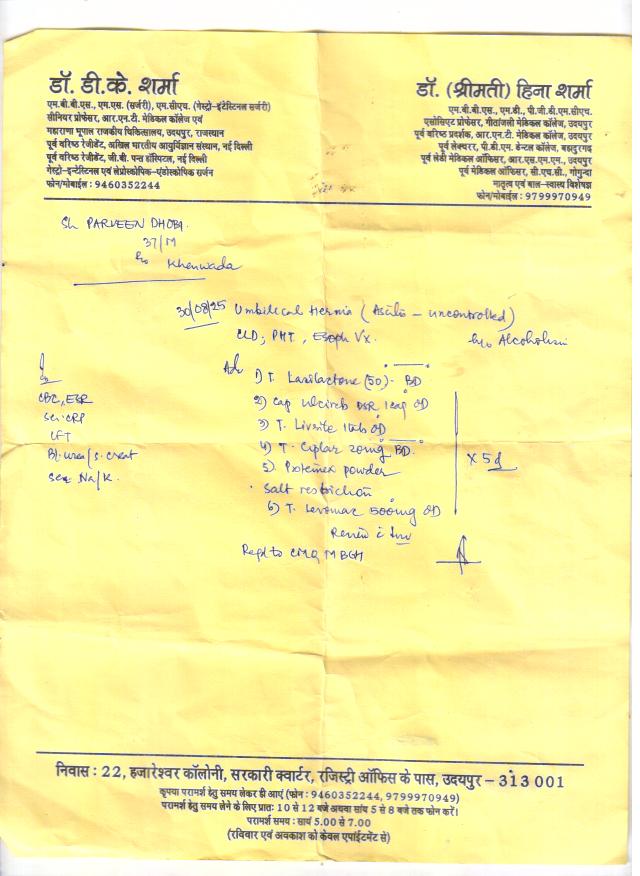 डॉ. डी.के. शर्मा
एम.बी.बी.एस., एम.एस. (सर्जरी), एम.सीएच. (गेस्ट्रो-इंटेस्टिनल सर्जरी)
सीनियर प्रोफेसर, आर.एन.टी. मेडिकल कॉलेज एवं
महाराणा भूपाल राजकीय चिकित्सालय, उदयपुर, राजस्थान
पूर्व वरिष्ठ रेजीडेंट, अखिल भारतीय आयुर्विज्ञान संस्थान, नई दिल्ली
पूर्व वरिष्ठ रेजीडेंट, जी.बी. पन्त हॉस्पिटल, नई दिल्ली
गेस्ट्रो-इन्टेस्टिनल एवं लेप्रोस्कोपिक-एंडोस्कोपिक सर्जन
फोन/मोबाईल : 9460352244
डॉ. (श्रीमती) हिना शर्मा
एम.बी.बी.एस., एम.डी., पी.जी.डी.एम.सीएच.
एसोसिएट प्रोफेसर, गीतांजली मेडिकल कॉलेज, उदयपुर
पूर्व वरिष्ठ प्रदर्शक, आर.एन.टी. मेडिकल कॉलेज, उदयपुर
पूर्व लेक्चरर, पी.डी.एम. डेन्टल कॉलेज, बहादुरगढ़
पूर्व लेडी मेडिकल ऑफिसर, आर.एस.एम.एम., उदयपुर
पूर्व मेडिकल ऑफिसर, सी.एच.सी., गोगुन्दा
मातृत्व एवं बाल-स्वास्थ्य विशेषज्ञ
फोन/मोबाईल : 9799970949
Sh PARVEEN DHOBI.
37/M
R/o Kherwada
30/08/25 Umbilical Hernia (Ascites - uncontrolled)
CLD, PHT, Esoph Vx. h/o Alcoholism
Adv
1) T. Lasilactone (50)- BD
2) Cap DSR 1cap OD
3) T. Livsite 1tab OD
4) T. Ciplar 20mg BD.
5) Proteinex powder
Salt restriction
6) T. Levomac 500mg OD
x 5d
Review c Inv
Refd to MBGH
CBC, ESR
Ser. CRP
LFT
Bl. urea/s. creat
Ser. Na/K.
निवास : 22, हजारेश्वर कॉलोनी, सरकारी क्वार्टर, रजिस्ट्री ऑफिस के पास, उदयपुर - 313 001
कृपया परामर्श हेतु समय लेकर ही आएं (फोन : 9460352244, 9799970949)
परामर्श हेतु समय लेने के लिए प्रातः 10 से 12 बजे अथवा सांय 5 से 8 बजे तक फोन करें।
परामर्श समय : सायं 5.00 से 7.00
(रविवार एवं अवकाश को केवल एपॉइंटमेंट से)